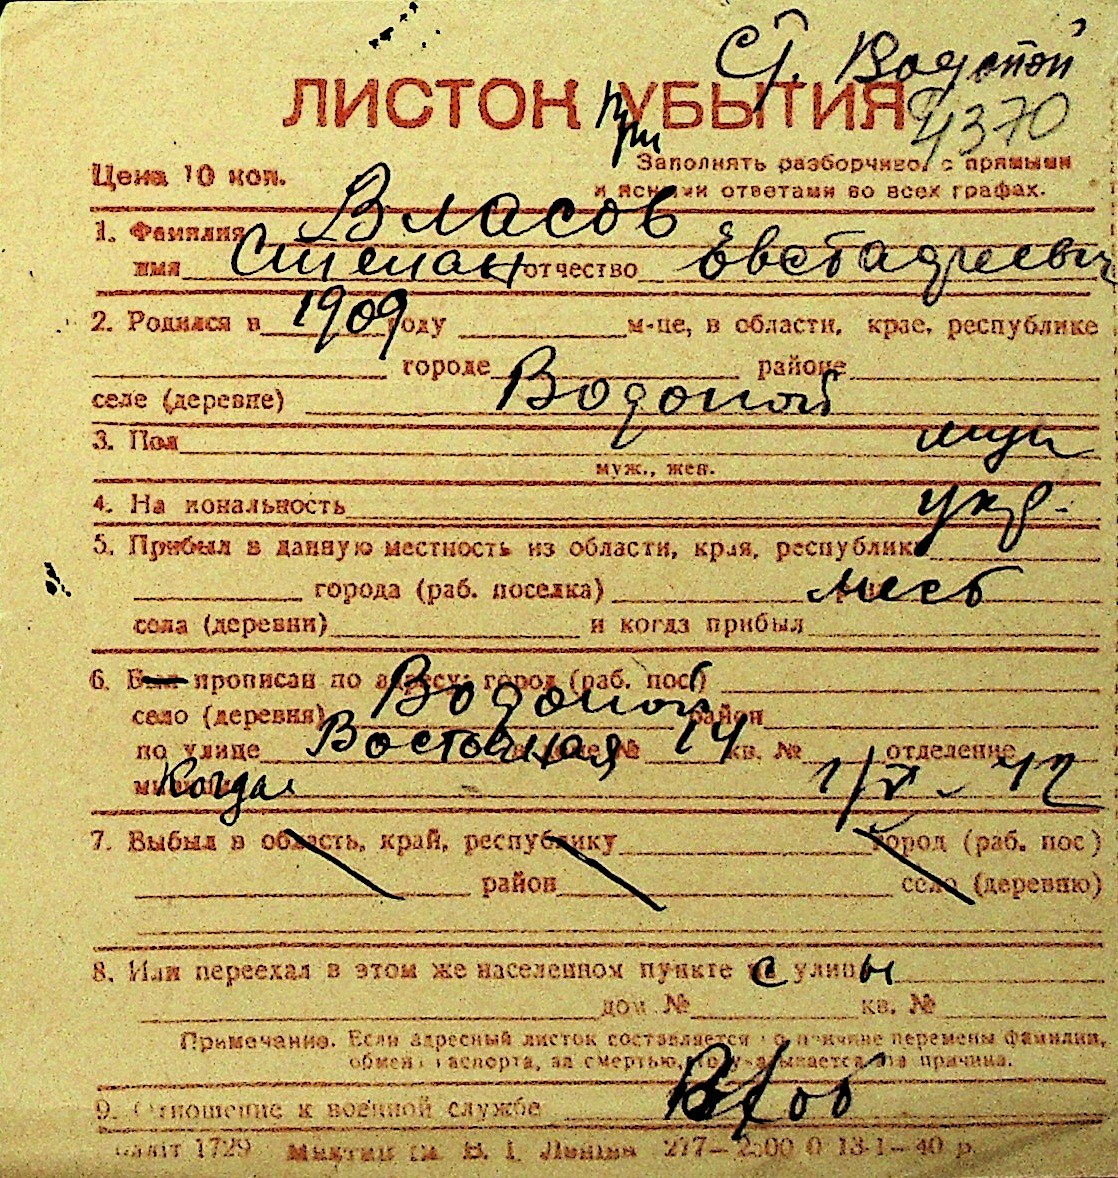 Ст. Водопой
4370
ЛИСТОК УБЫТИЯ
при
Заполнять разборчиво, с прямыми
Цена 10 коп.
и ясными ответами во всех графах.
1. Фамилия Власов
имя Степан отчество Евстафиевич
2. Родился в 1909 году м-це, в области, крае, республике
городе районе
селе (деревне) Водопой
3. Пол муж
муж., жен.
4. Национальность укр.
5. Прибыл в данную местность из области, края, республики
города (раб. поселка) мест
села (деревни) и когда прибыл
6. Был прописан по адресу: город (раб. пос.)
село (деревня) Водопой район
по улице Восточная в доме № 14 кв. № отделение
милиции Когда 1/V - 42
7. Выбыл в область, край, республику город (раб. пос)
район село (деревню)
8. Или переехал в этом же населенном пункте с улицы
дом № кв. №
Примечание. Если адресный листок составляется по причине перемены фамилии,
обмена паспорта, за смертью, то указывается эта причина.
9. Отношение к военной службе
1729 им. В. І. Леніна 277—2500 0 13-1-40 р.